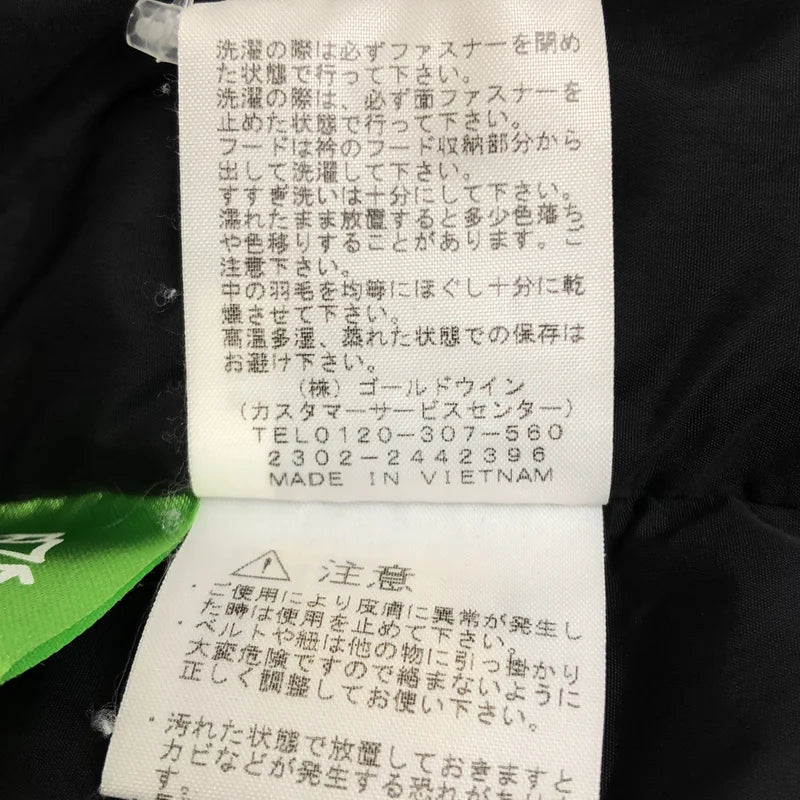 洗濯の際は必ずファスナーを閉め
た状態で行って下さい。
洗濯の際は、必ず面ファスナーを
止めた状態で行って下さい。
フードは衿のフード収納部分から
出して洗濯して下さい。
すすぎ洗いは十分にして下さい。
濡れたまま放置すると多少色落ち
や色移りすることがあります。ご
注意下さい。
中の羽毛を均等にほぐし十分に乾
燥させて下さい。
高温多湿、蒸れた状態での保存は
お避け下さい。
(株)ゴールドウイン
(カスタマーサービスセンター)
TEL0120-307-560
2302-2442396
MADE IN VIETNAM
注意
・ご使用により皮膚に異常が発生し
た時は使用を止めて下さい。
・ベルトや紐は他の物に引っ掛かり
大変危険ですので絡まないように
正しく調整してお使い下さい。
・汚れた状態で放置しておきますと
カビなどが発生する恐れがありま
す。